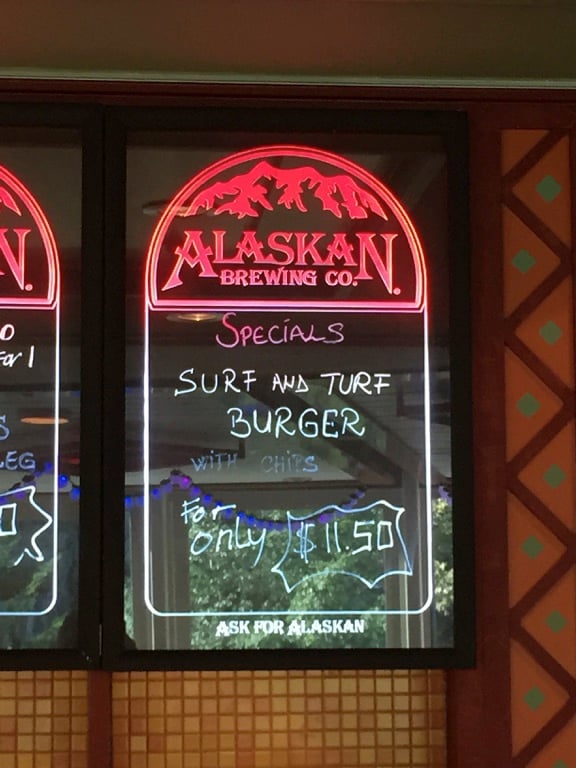 N.
0
For 1
S
LEG
0
ALASKAN
BREWING CO.
SPECIALS
SURF AND TURF
BURGER
WITH CHIPS
For
only $11.50
ASK FOR ALASKAN